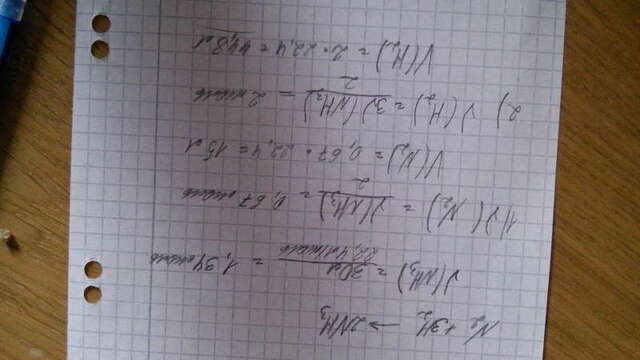 N₂ + 3H₂ → 2NH₃
ν(NH₃) = 30л / 22,4 л/моль = 1,34 моль
1) ν(N₂) = ν(NH₃) / 2 = 0,67 моль
V(N₂) = 0,67 · 22,4 = 15 л
2) ν(H₂) = 3ν(NH₃) / 2 = 2 моль
V(H₂) = 2 · 22,4 = 44,8 л